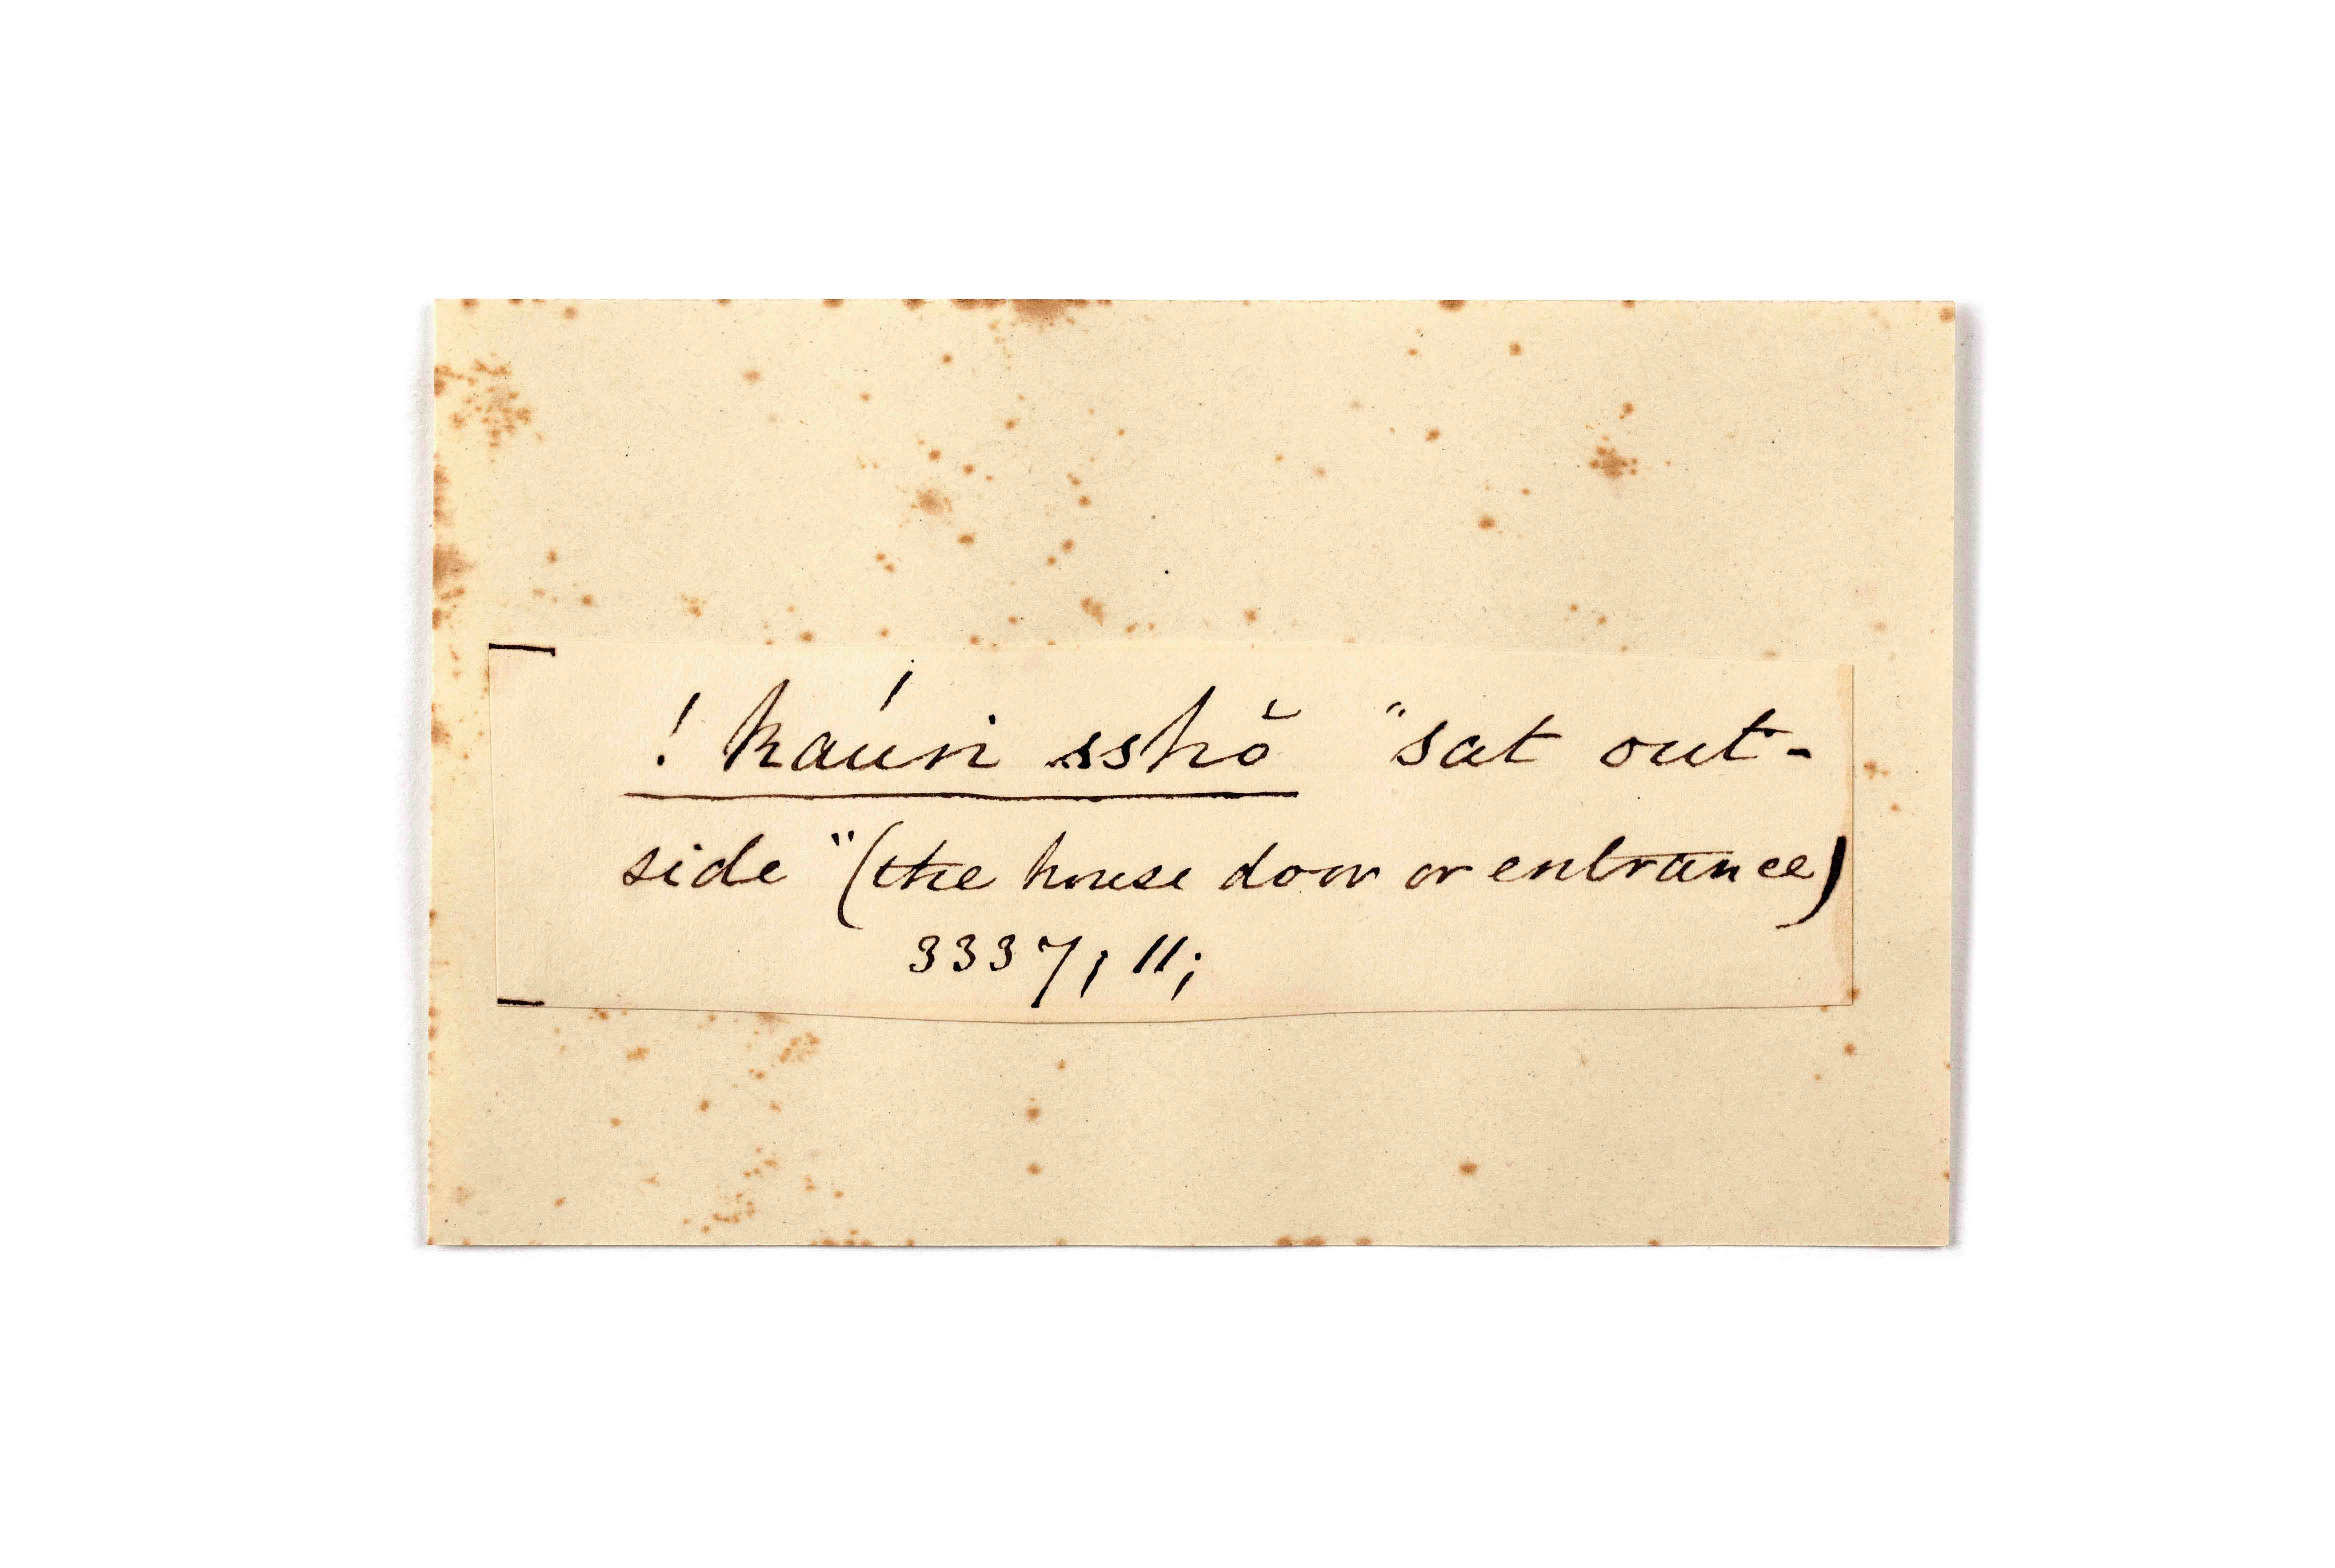 ! kaúïn sshŏ "sat out-
side" (the house door or entrance)
3337, 11;